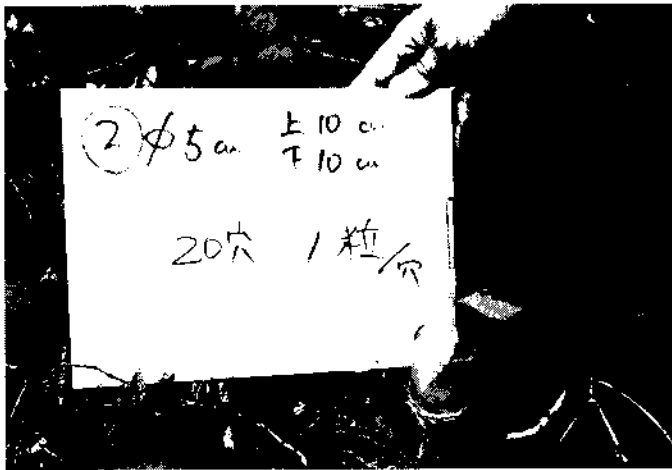 ② φ5cm 上10cm
下10cm
20穴 1粒/穴